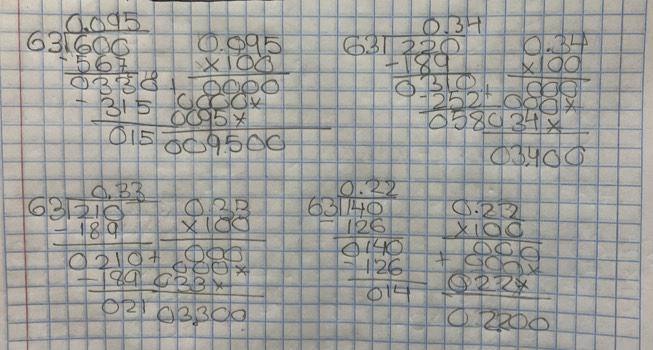 0.095
63 600 0.095
-567 ×100
0330 + 0000
-315 0000×
0095×
015 009.500
0.34
63 220 0.34
-189 ×100
0310 000
-252 + 000×
058 034×
03400
0.33
63 210 0.33
-189 ×100
0210 + 000
000×
-189 033×
021 03300
0.22
63 140 0.22
-126 ×100
0140 000
-126 + 000×
014 022×
0.2200